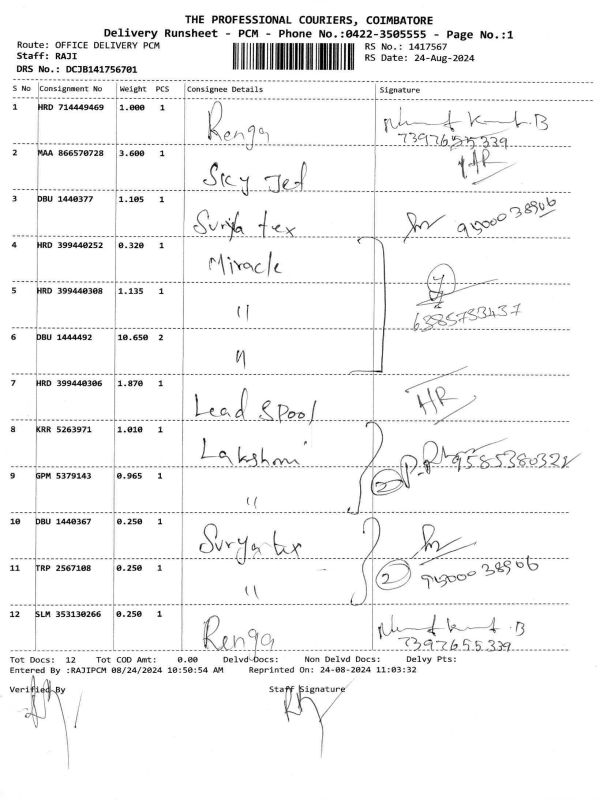 THE PROFESSIONAL COURIERS, COIMBATORE
Delivery Runsheet - PCM - Phone No.:0422-3505555 - Page No.:1
Route: OFFICE DELIVERY PCM RS No.: 1417567
Staff: RAJI RS Date: 24-Aug-2024
DRS No.: DCJB141756701
S No Consignment No Weight PCS Consignee Details Signature
1 HRD 714449469 1.000 1 Renga
7397655339
2 MAA 866570728 3.600 1 Sky Jet
3 DBU 1440377 1.105 1 Surya tex
4 HRD 399440252 0.320 1 Miracle
5 HRD 399440308 1.135 1 "
6385733437
6 DBU 1444492 10.650 2 "
7 HRD 399440306 1.870 1 Lead Spool
8 KRR 5263971 1.010 1 Lakshmi
9 GPM 5379143 0.965 1 " 2
10 DBU 1440367 0.250 1 Suryatex
11 TRP 2567108 0.250 1 " 2
12 SLM 353130266 0.250 1 Renga
7397655339
Tot Docs: 12 Tot COD Amt: 0.00 Delvd Docs: Non Delvd Docs: Delvy Pts:
Entered By :RAJIPCM 08/24/2024 10:50:54 AM Reprinted On: 24-08-2024 11:03:32
Verified By Staff Signature